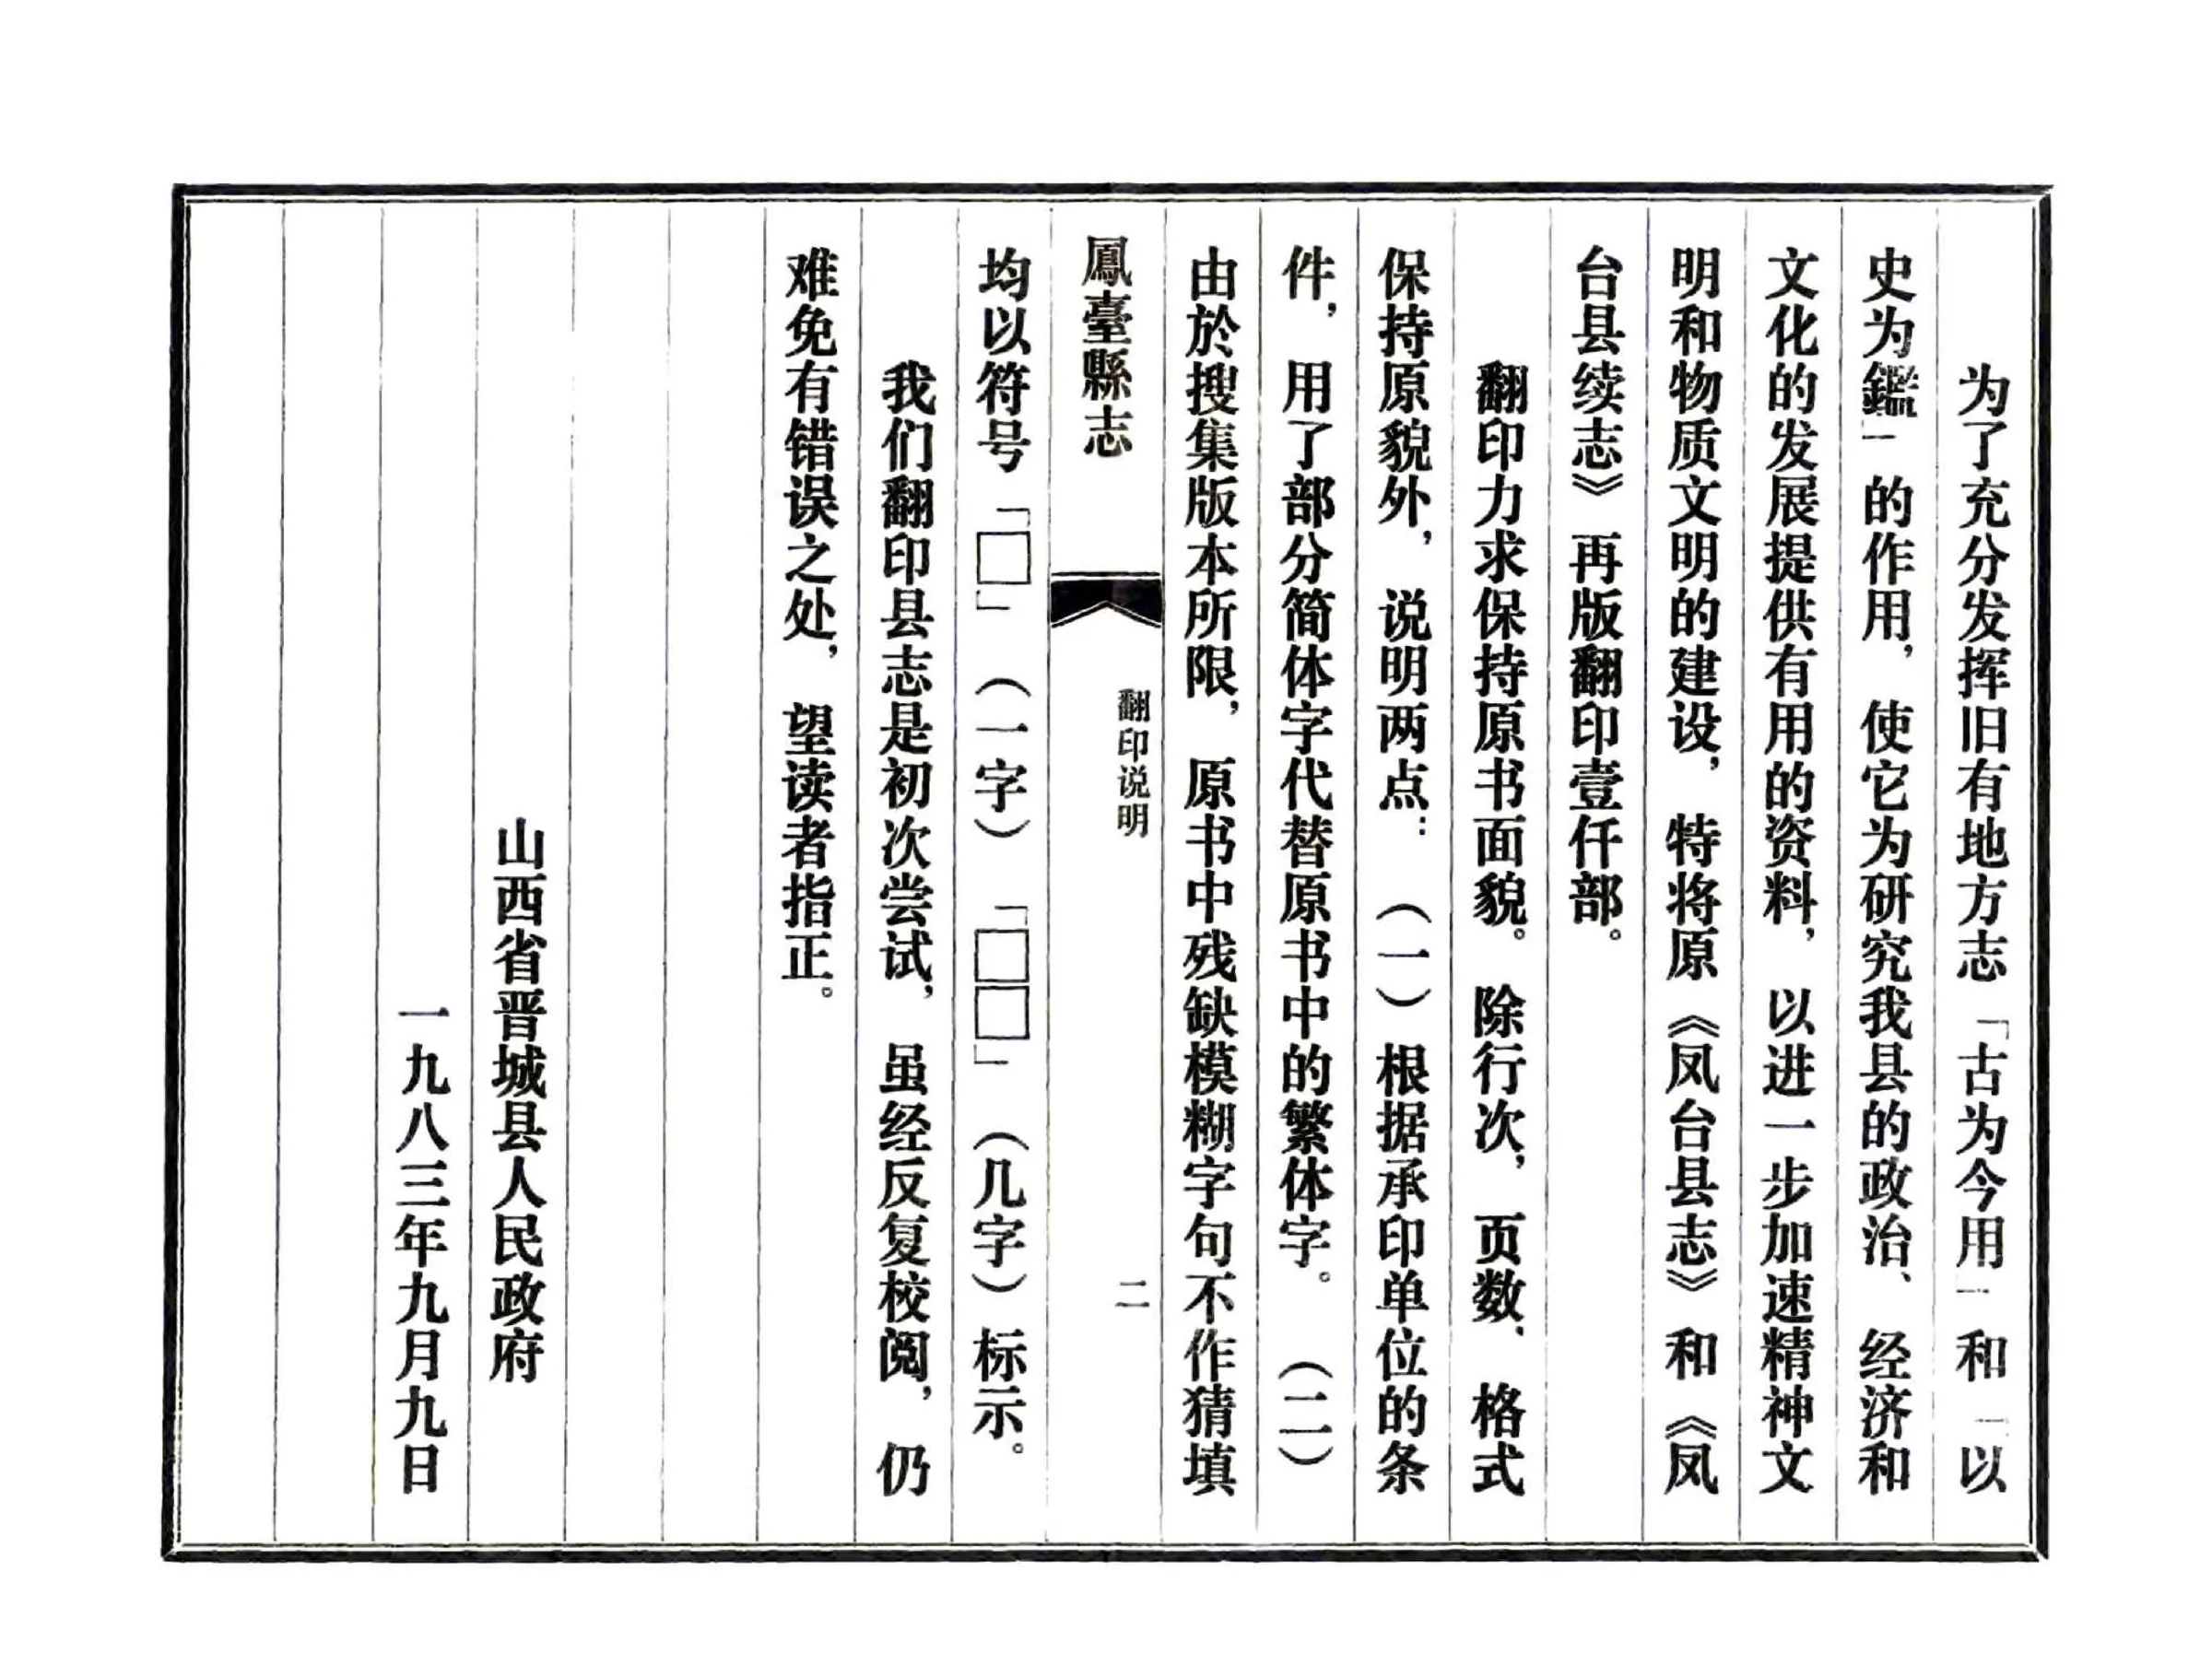 为了充分发挥旧有地方志「古为今用」和「以
史为鑑」的作用，使它为研究我县的政治、经济和
文化的发展提供有用的资料，以进一步加速精神文
明和物质文明的建设，特将原《凤台县志》和《凤
台县续志》再版翻印壹仟部。
翻印力求保持原书面貌。除行次，页数，格式
保持原貌外，说明两点：（一）根据承印单位的条
件，用了部分简体字代替原书中的繁体字。（二）
由於搜集版本所限，原书中残缺模糊字句不作猜填
鳳臺縣志
翻印说明
二
均以符号「□」（一字）「□□」（几字）标示。
我们翻印县志是初次尝试，虽经反复校阅，仍
难免有错误之处，望读者指正。
山西省晋城县人民政府
一九八三年九月九日